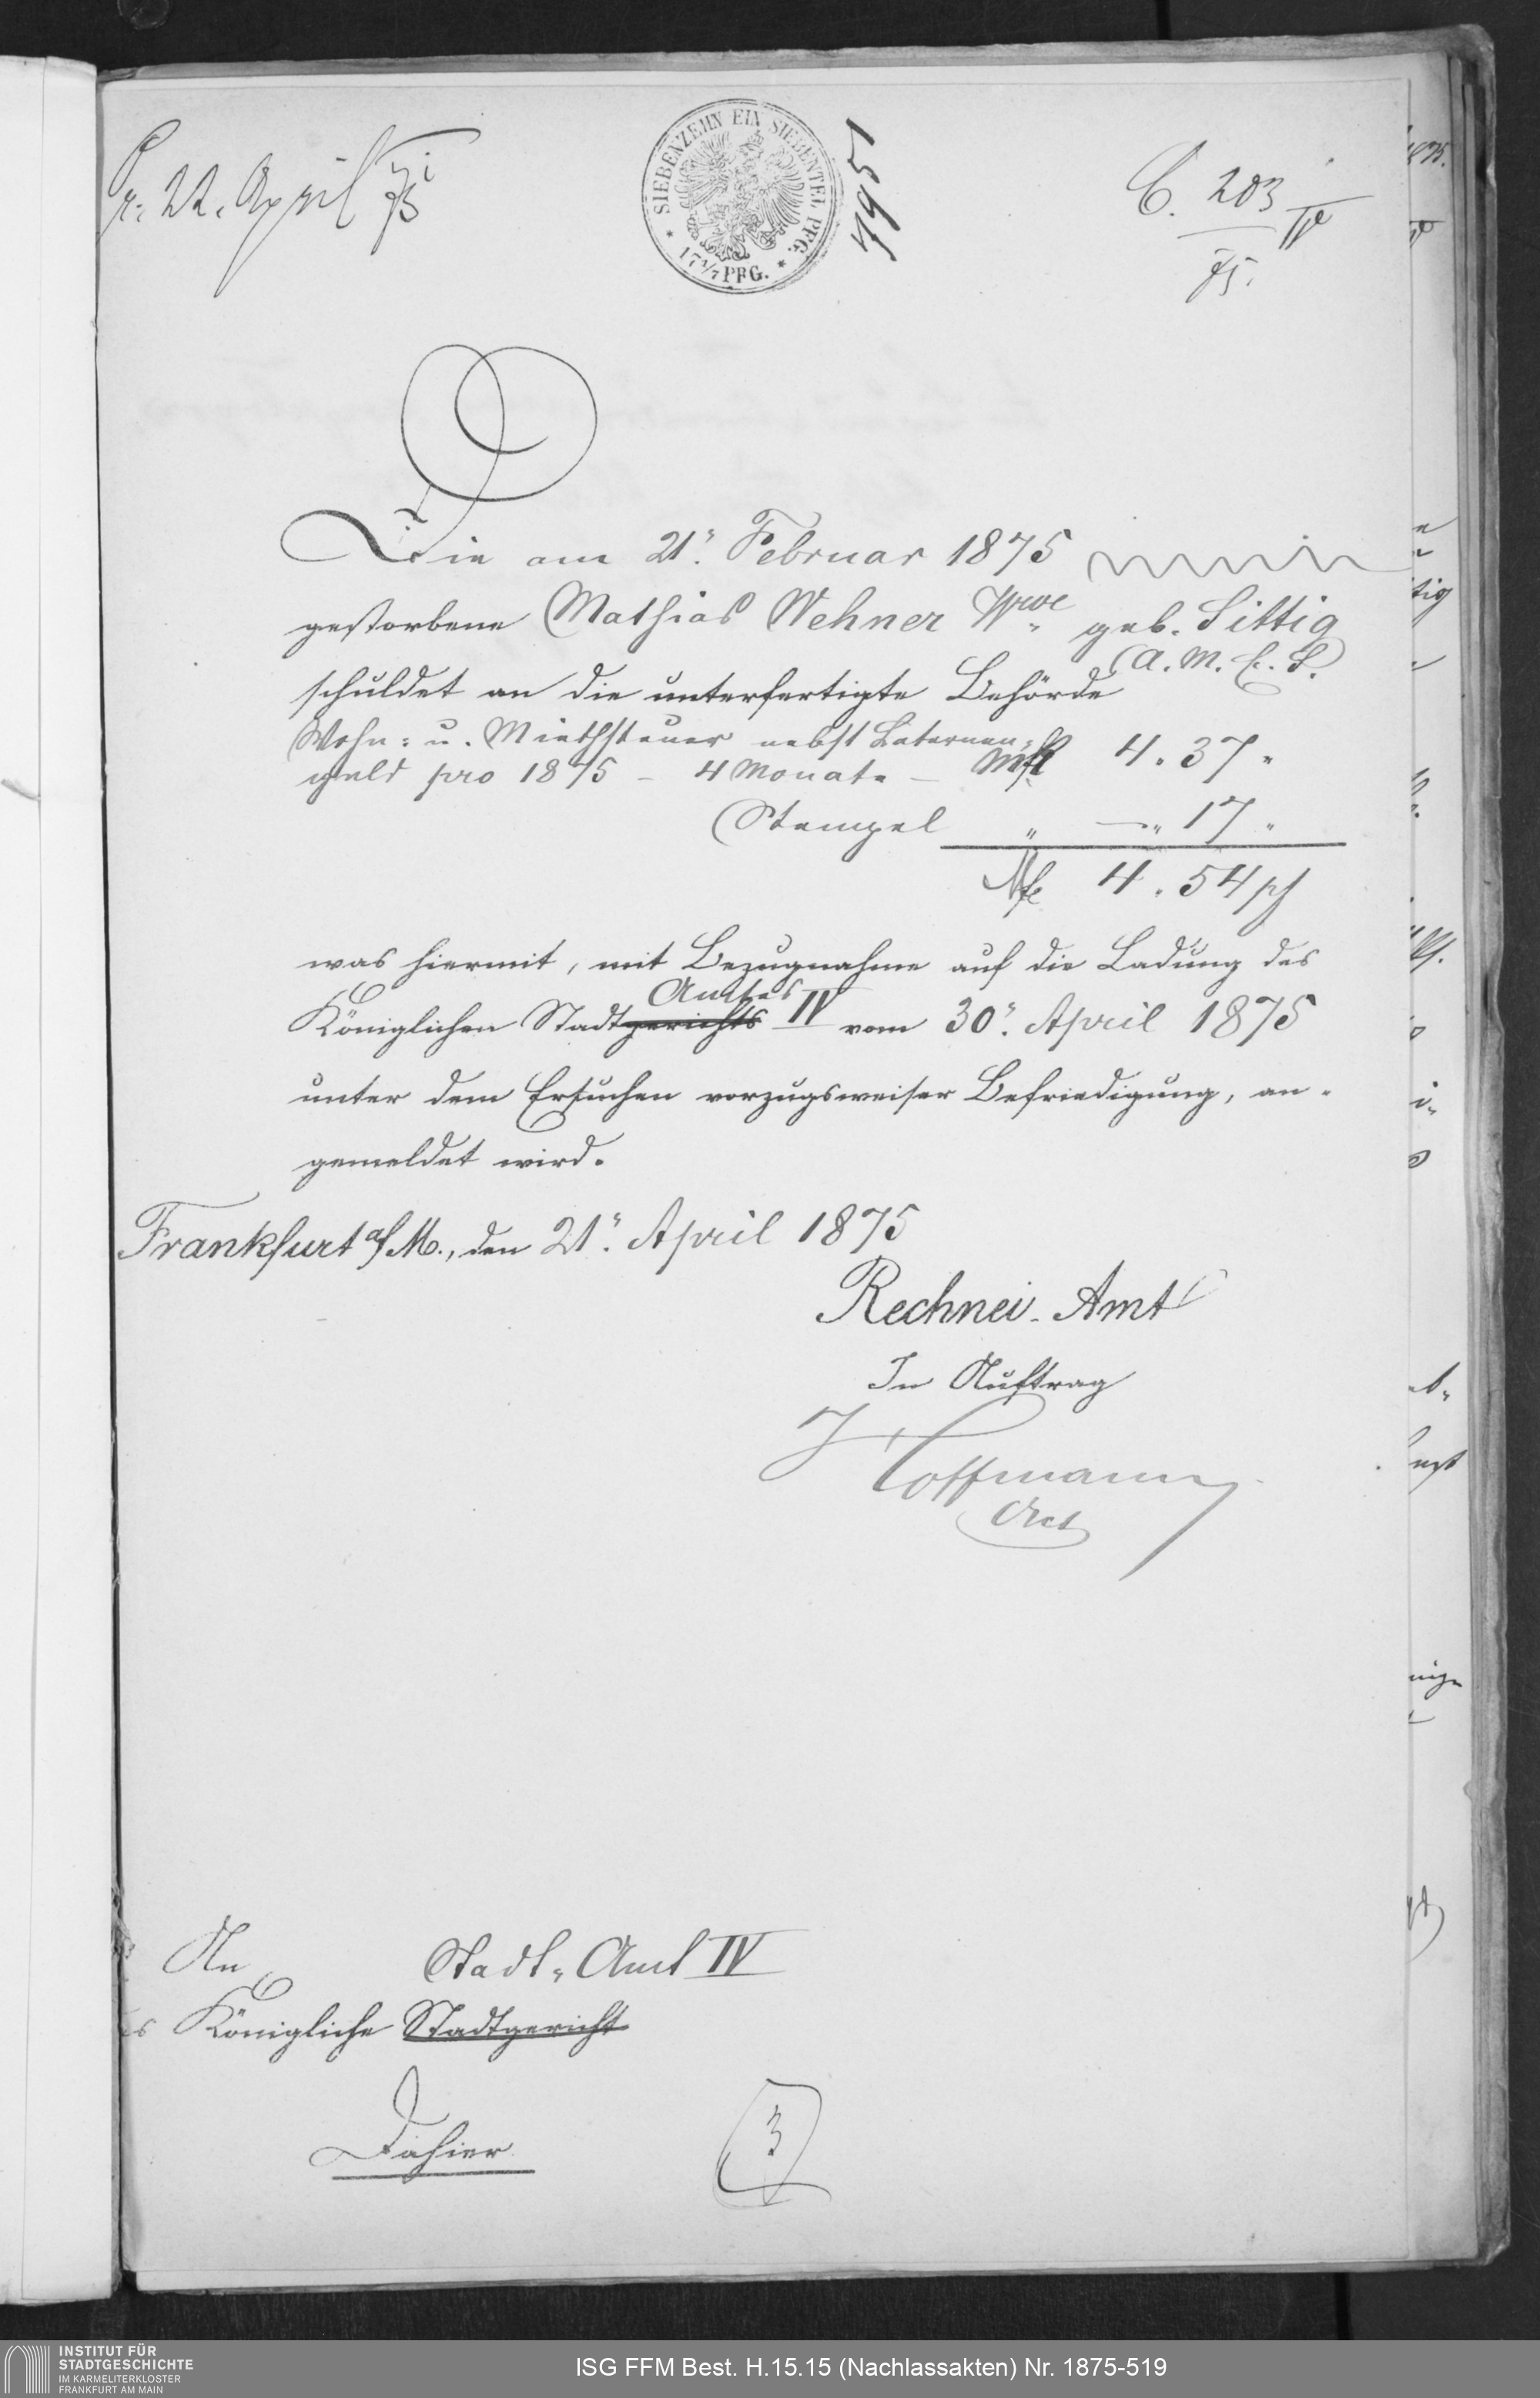 Pr. 22. April 75
SIEBENZEHN EIN SIEBENTEL PFG.
17 1/7 PFG.
7951
C. 203 IV
75.
Die am 21. Februar 1875
gestorbene Mathias Wehner Wwe geb. Sittig
(A. M. C. S.)
schuldet an die unterfertigte Behörde
Wohn= u. Miethsteuer nebst Laternen=
geld pro 1875 – 4 Monate – Mk 4. 37 "
Stempel " —" 17 "
Mk 4. 54 pf
was hiermit, mit Bezugnahme auf die Ladung des
Amtes
Königlichen Stadtgerichts IV vom 30. April 1875
unter dem Ersuchen vorzugsweiser Befriedigung, an-
gemeldet wird.
Frankfurt a/M., den 21. April 1875
Rechnei-Amt
In Auftrag
J Hoffmann
Act
An Stadt-Amt IV
es Königliche Stadtgericht
Dahier
3
INSTITUT FÜR
STADTGESCHICHTE
IM KARMELITERKLOSTER
FRANKFURT AM MAIN
ISG FFM Best. H.15.15 (Nachlassakten) Nr. 1875-519